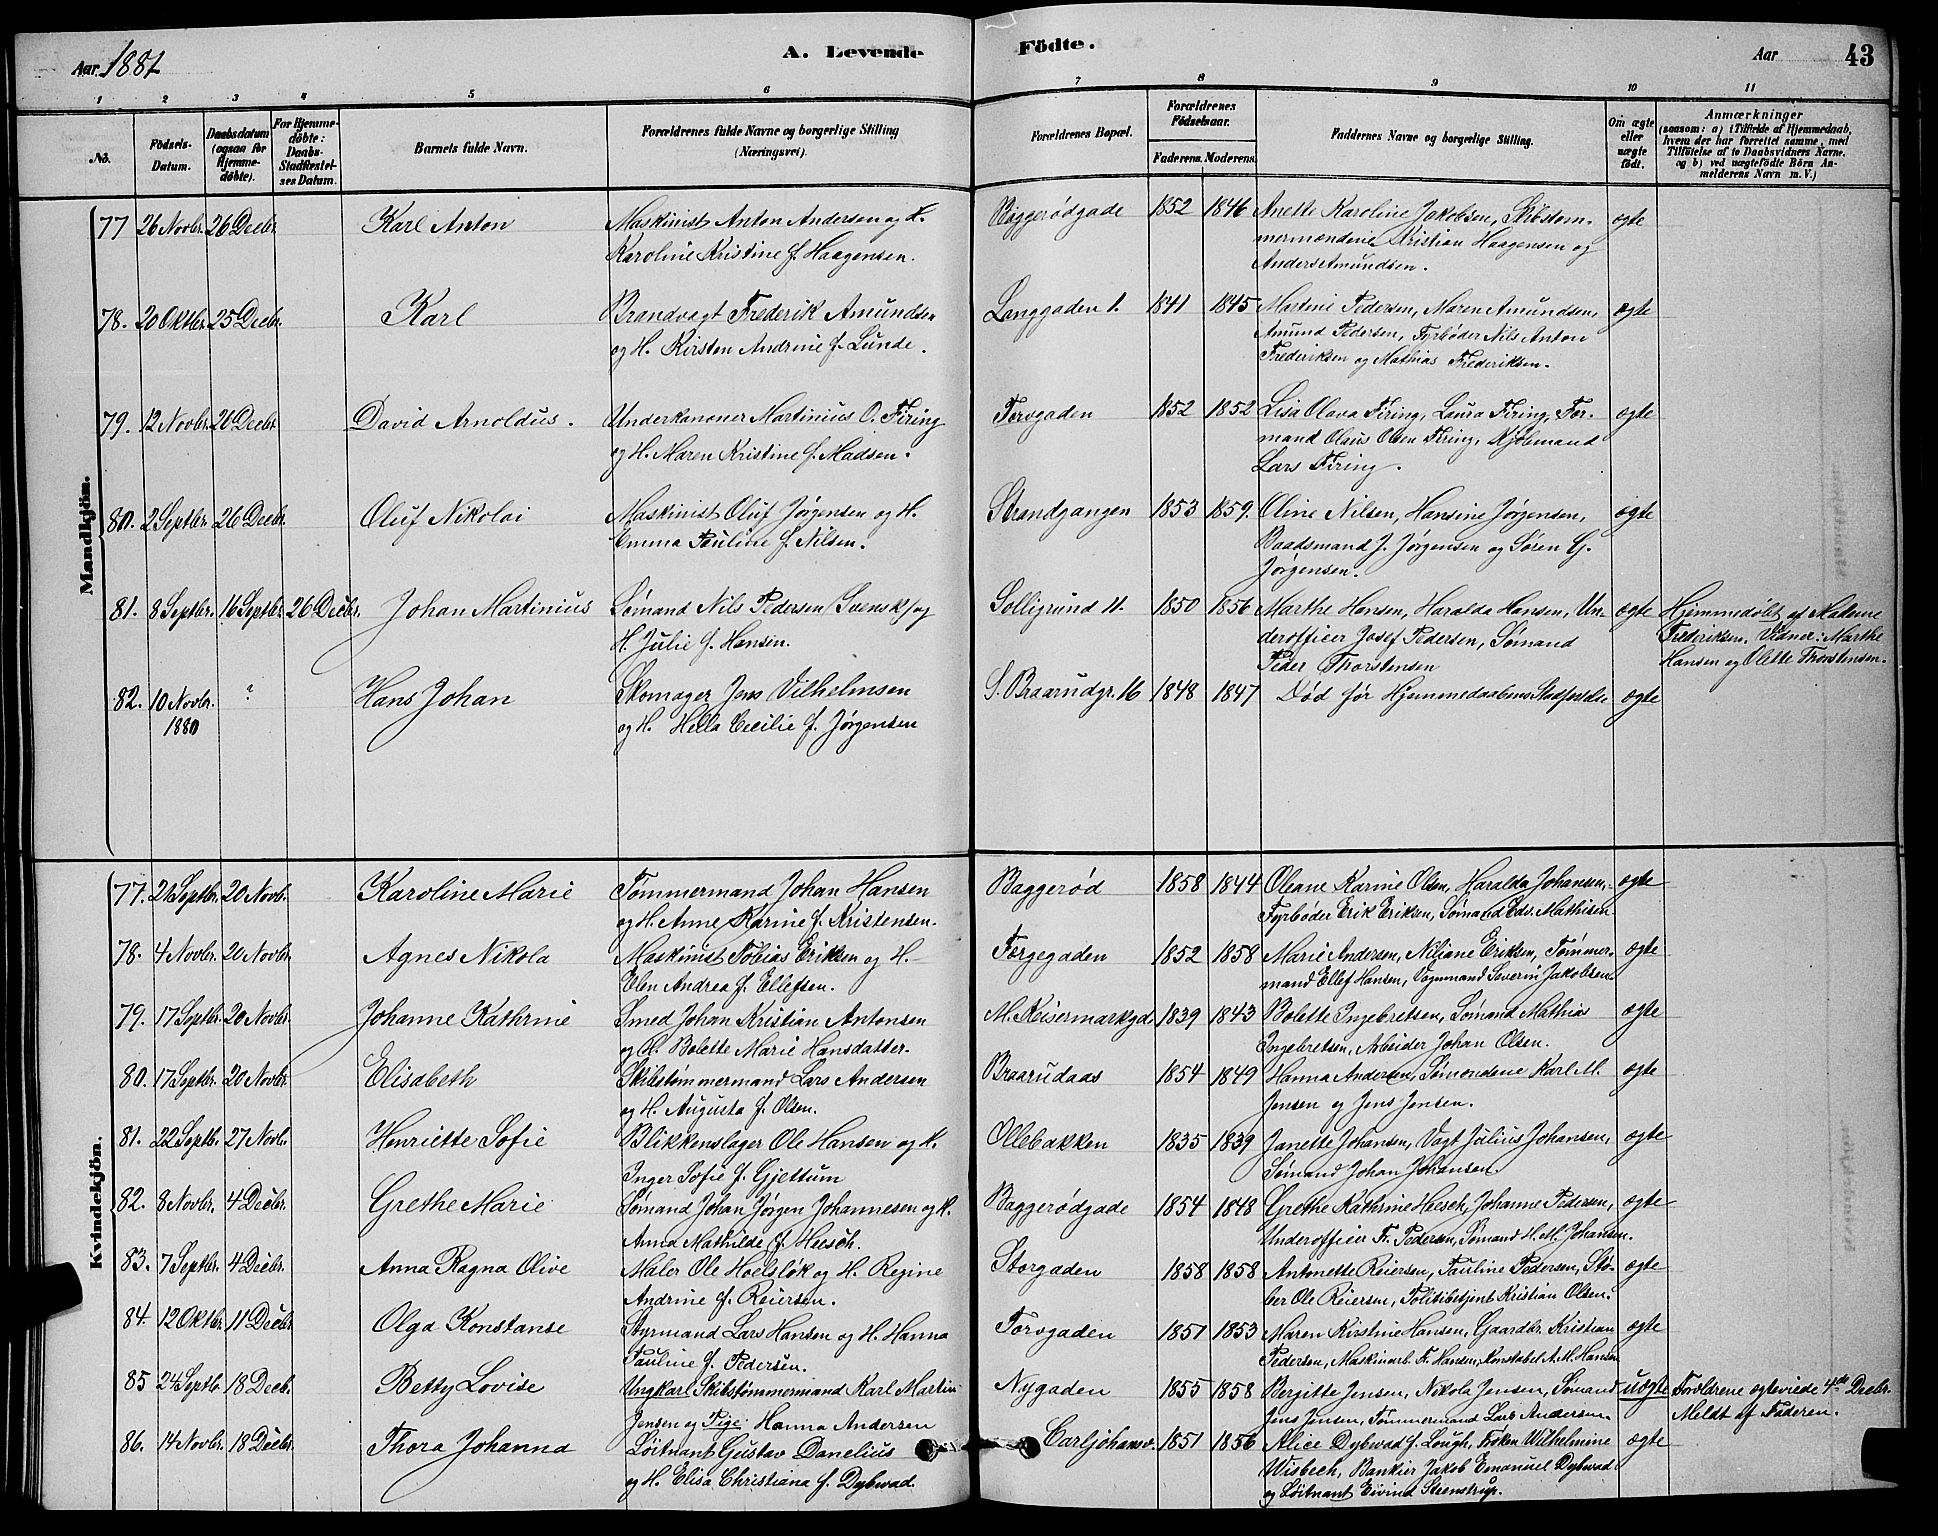 Aar 1881
A. Levende Födte.
Aar
43
1 2 3 4 5 6 7 8 9 10 11
No.
Födsels-Datum.
Daabsdatum (ogsaa for Hjemmedöbte).
For Hjemmedöbte: Daabs-Stadfæstelses Datum.
Barnets fulde Navn.
Forældrenes fulde Navne og borgerlige Stilling (Næringsvei).
Forældrenes Bopæl.
Forældrenes Födselsaar.
Faderens. Moderens.
Faddernes Navne og borgerlige Stilling.
Om ægte eller uægte födt.
Anmærkninger (saasom: a) i Tilfælde af Hjemmedaab, hvem der har forrettet samme, med Tilföielse af to Daabsvidners Navne, og b) ved uægtefödte Börn Anmelderens Navn m. V.)
Mandkjön.
77 26 Novbr. 26 Decbr. Karl Anton Maskinist Anton Andersen og H. Baggerødgade 1852 1846 Anette Karoline Jakobsen, Skibstom- ægte
Karoline Kristine f. Haagensen. mermændene Kristian Haagensen og
Anders Amundsen.
78. 20 Oktbr. 25 Decbr. Karl Brandvagt Frederik Amundsen Langgaden 1. 1841 1845 Martine Pedersen, Maren Amundsen, ægte
og H. Kirsten Andrine f. Lunde. Amund Pedersen, Fyrbøder Nils Anton
Frederiksen og Mathias Frederiksen.
79. 12 Novbr. 26 Decbr. David Arnoldus. Underkanoner Martinius O. Firing Torvgaden 1852 1852 Lisa Olava Firing, Laura Firing, For- ægte
og H. Maren Kristine f. Madsen. mand Olaus Olsen Firing, Kjølemand
Lars Firing.
80. 2 Septbr. 26 Decbr. Oluf Nikolai Maskinist Oluf Jørgensen og H. Strandgangen 1853 1859. Oline Nilsen, Hansine Jørgensen, ægte
Emma Pauline f. Nilsen. Baadsmand J. Jørgensen og Søren G.
Jørgensen.
81. 8 Septbr. 16 Septbr. 26 Decbr. Johan Martinius Sømand Nils Pedersen (Svensk) og Solligrund 11. 1850 1856 Marthe Hansen, Haralda Hansen, Un- ægte Hjemmedøbt af Madame
H. Julie f. Hansen. derofficer Josef Pedersen, Sømand Frederiksen. Vidner: Marthe
Peder Thorstensen Hansen og Olette Thorstensen.
82. 10 Novbr. ? Hans Johan Skomager Jens Vilhelmsen S. Braarudgr. 16 1848 1847 Død før Hjemmedaabens ægte
1880 og H. Hella Cecilie f. Jørgensen
Kvindekjön.
77. 21 Septbr. 20 Novb. Karoline Marie Tømmermand Johan Hansen Baggerød 1858 1844 Oleane Karine Olsen, Haralda Johansen, ægte
og H. Anne Karine f. Kristensen. Fyrbøder Erik Eriksen, Sømand Edv. Mathisen
78. 4 Novbr. 20 Novbr. Agnes Nikola Maskinist Tobias Eriksen og H. Torgegaden 1852 1858 Marie Andersen, Niliane Eriksen, Tømmer- ægte
Elen Andrea f. Ellefsen. mand Ellef Hansen, Vognmand Severin Jakobsen
79. 17 Septbr. 20 Novbr. Johanne Kathrine Smed Johan Kristian Antonsen M. Keisermarkgd. 1839 1843 Bolette Ingebretsen, Sømand Mathias ægte
og H. Bolette Marie Hansdatter. Ingebretsen, Arbeider Johan Olsen.
80. 17 Septbr. 20 Novbr. Elisabeth Skibstømmermand Lars Andersen Braarudaas 1854 1849 Hanna Andersen, Sømændene Karl M. ægte
og H. Augusta f. Olsen. Jensen og Jens Jensen.
81. 22 Septb. 27 Novb. Henriette Sofie Blikkenslager Ole Hansen og H. Ollebakken 1835 1839 Janette Johansen, Vagt Julius Johansen, ægte
Inger Sofie f. Gjettum Sømand Johan Johansen.
82. 8 Novbr. 4 Decbr. Grethe Marie Sømand Johan Jørgen Johannesen og H. Baggerødgade 1854 1848 Grethe Kathrine Heesch, Johanne Pedersen, ægte
Anna Mathilde f. Heesch. Underofficer F. Pedersen, Sømand H. M. Johansen.
83. 7 Septbr. 4 Decbr. Anna Ragna Olive Maler Ole Hoelsløk og H. Regine Storgaden 1858 1858 Antonette Reiersen, Pauline Pedersen, Stø- ægte
Andrine f. Reiersen. ber Ole Reiersen, Politibetjent Kristian Olsen.
84. 12 Oktbr. 11 Decbr. Olga Konstanse Styrmand Lars Hansen og H. Hanna Torvgaden 1851 1853 Maren Kirstine Hansen, Gaardbr. Kristian ægte
Pauline f. Pedersen. Pedersen, Maskinarb. F. Hansen, Konstabel A. M. Hansen
85 24 Septb. 18 Decb. Betty Lovise Ungkarl Skibstømmermand Karl Martin Nygaden 1855 1858 Bergitte Jensen, Nikola Jensen, Sømand uægte Forældrene ægteviede 4de Decbr.
Jensen og Pige Hanna Andersen Jens Jensen, Tømmermand Lars Andersen. Meldt af Faderen.
86. 14 Novbr. 18 Decbr. Thora Johanna Løitnant Gustav Danelius Carljohansv. 1851 1856 Alice Dybwad f. Lough, Frøken Wilhelmine ægte
og H. Elisa Christiana f. Dybwad. Wisbech, Bankier Jakob Emanuel Dybwad
og Løitnant Eivind Steenstrup.